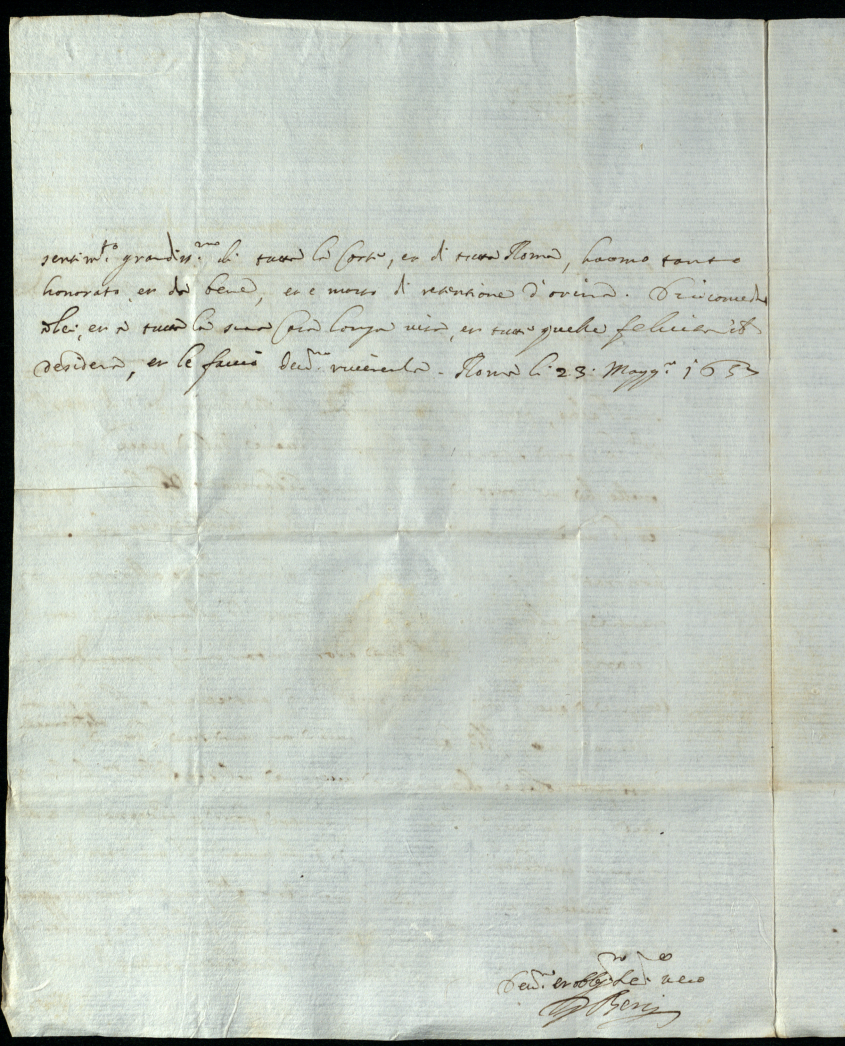 sentim.to grandiss.mo di tutta la Corte, et di tutta Roma, huomo tanto
honorato, et da bene, et è morto di retentione d'orina. Dio conceda
à lei, et à tutta la sua Casa longa vita, et tutte quelle felicità
desidera, et le faccio dev.ma riverenza. Roma li 23. Magg.o 165
Dev.mo et obblig. vero